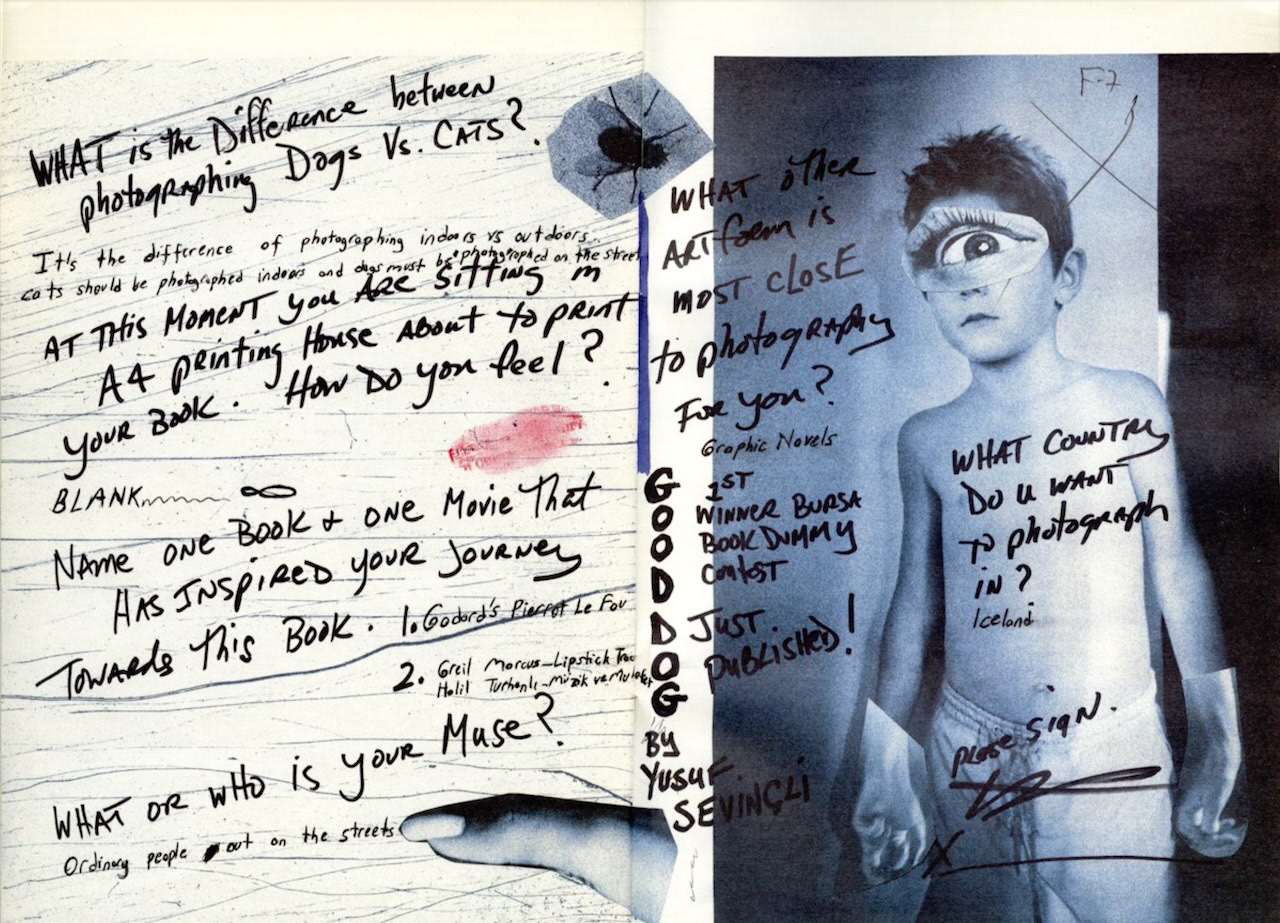 WHAT is the Difference between
photographing Dogs Vs. CATS?
It's the difference of photographing indoors vs outdoors.
cats should be photographed indoors and dogs must be photographed on the street
AT THIS MOMENT you ARE SITTING in
A4 printing House ABOUT to print
your BOOK. How Do you feel?
BLANK
NAME ONE BOOK + ONE Movie That
HAS INSPIRED YOUR JOURNEY
TOWARDS This BOOK. 1. Godard's Pierrot Le Fou
2. Greil Marcus-Lipstick Trac
Halil Turhanlı-Müzik ve
WHAT OR WHO is YOUR Muse?
Ordinary people out on the streets
WHAT other
ARTform is
MOST CLOSE
to photography
For you?
Graphic Novels
GOOD DOG
1ST
WINNER BURSA
BOOK DUMMY
Contest
JUST.
PUBLISHED!
BY
YUSUF
SEVİNÇLİ
F-7
WHAT COUNTRY
DO U WANT
TO photograph
in?
Iceland
please SIGN.
X